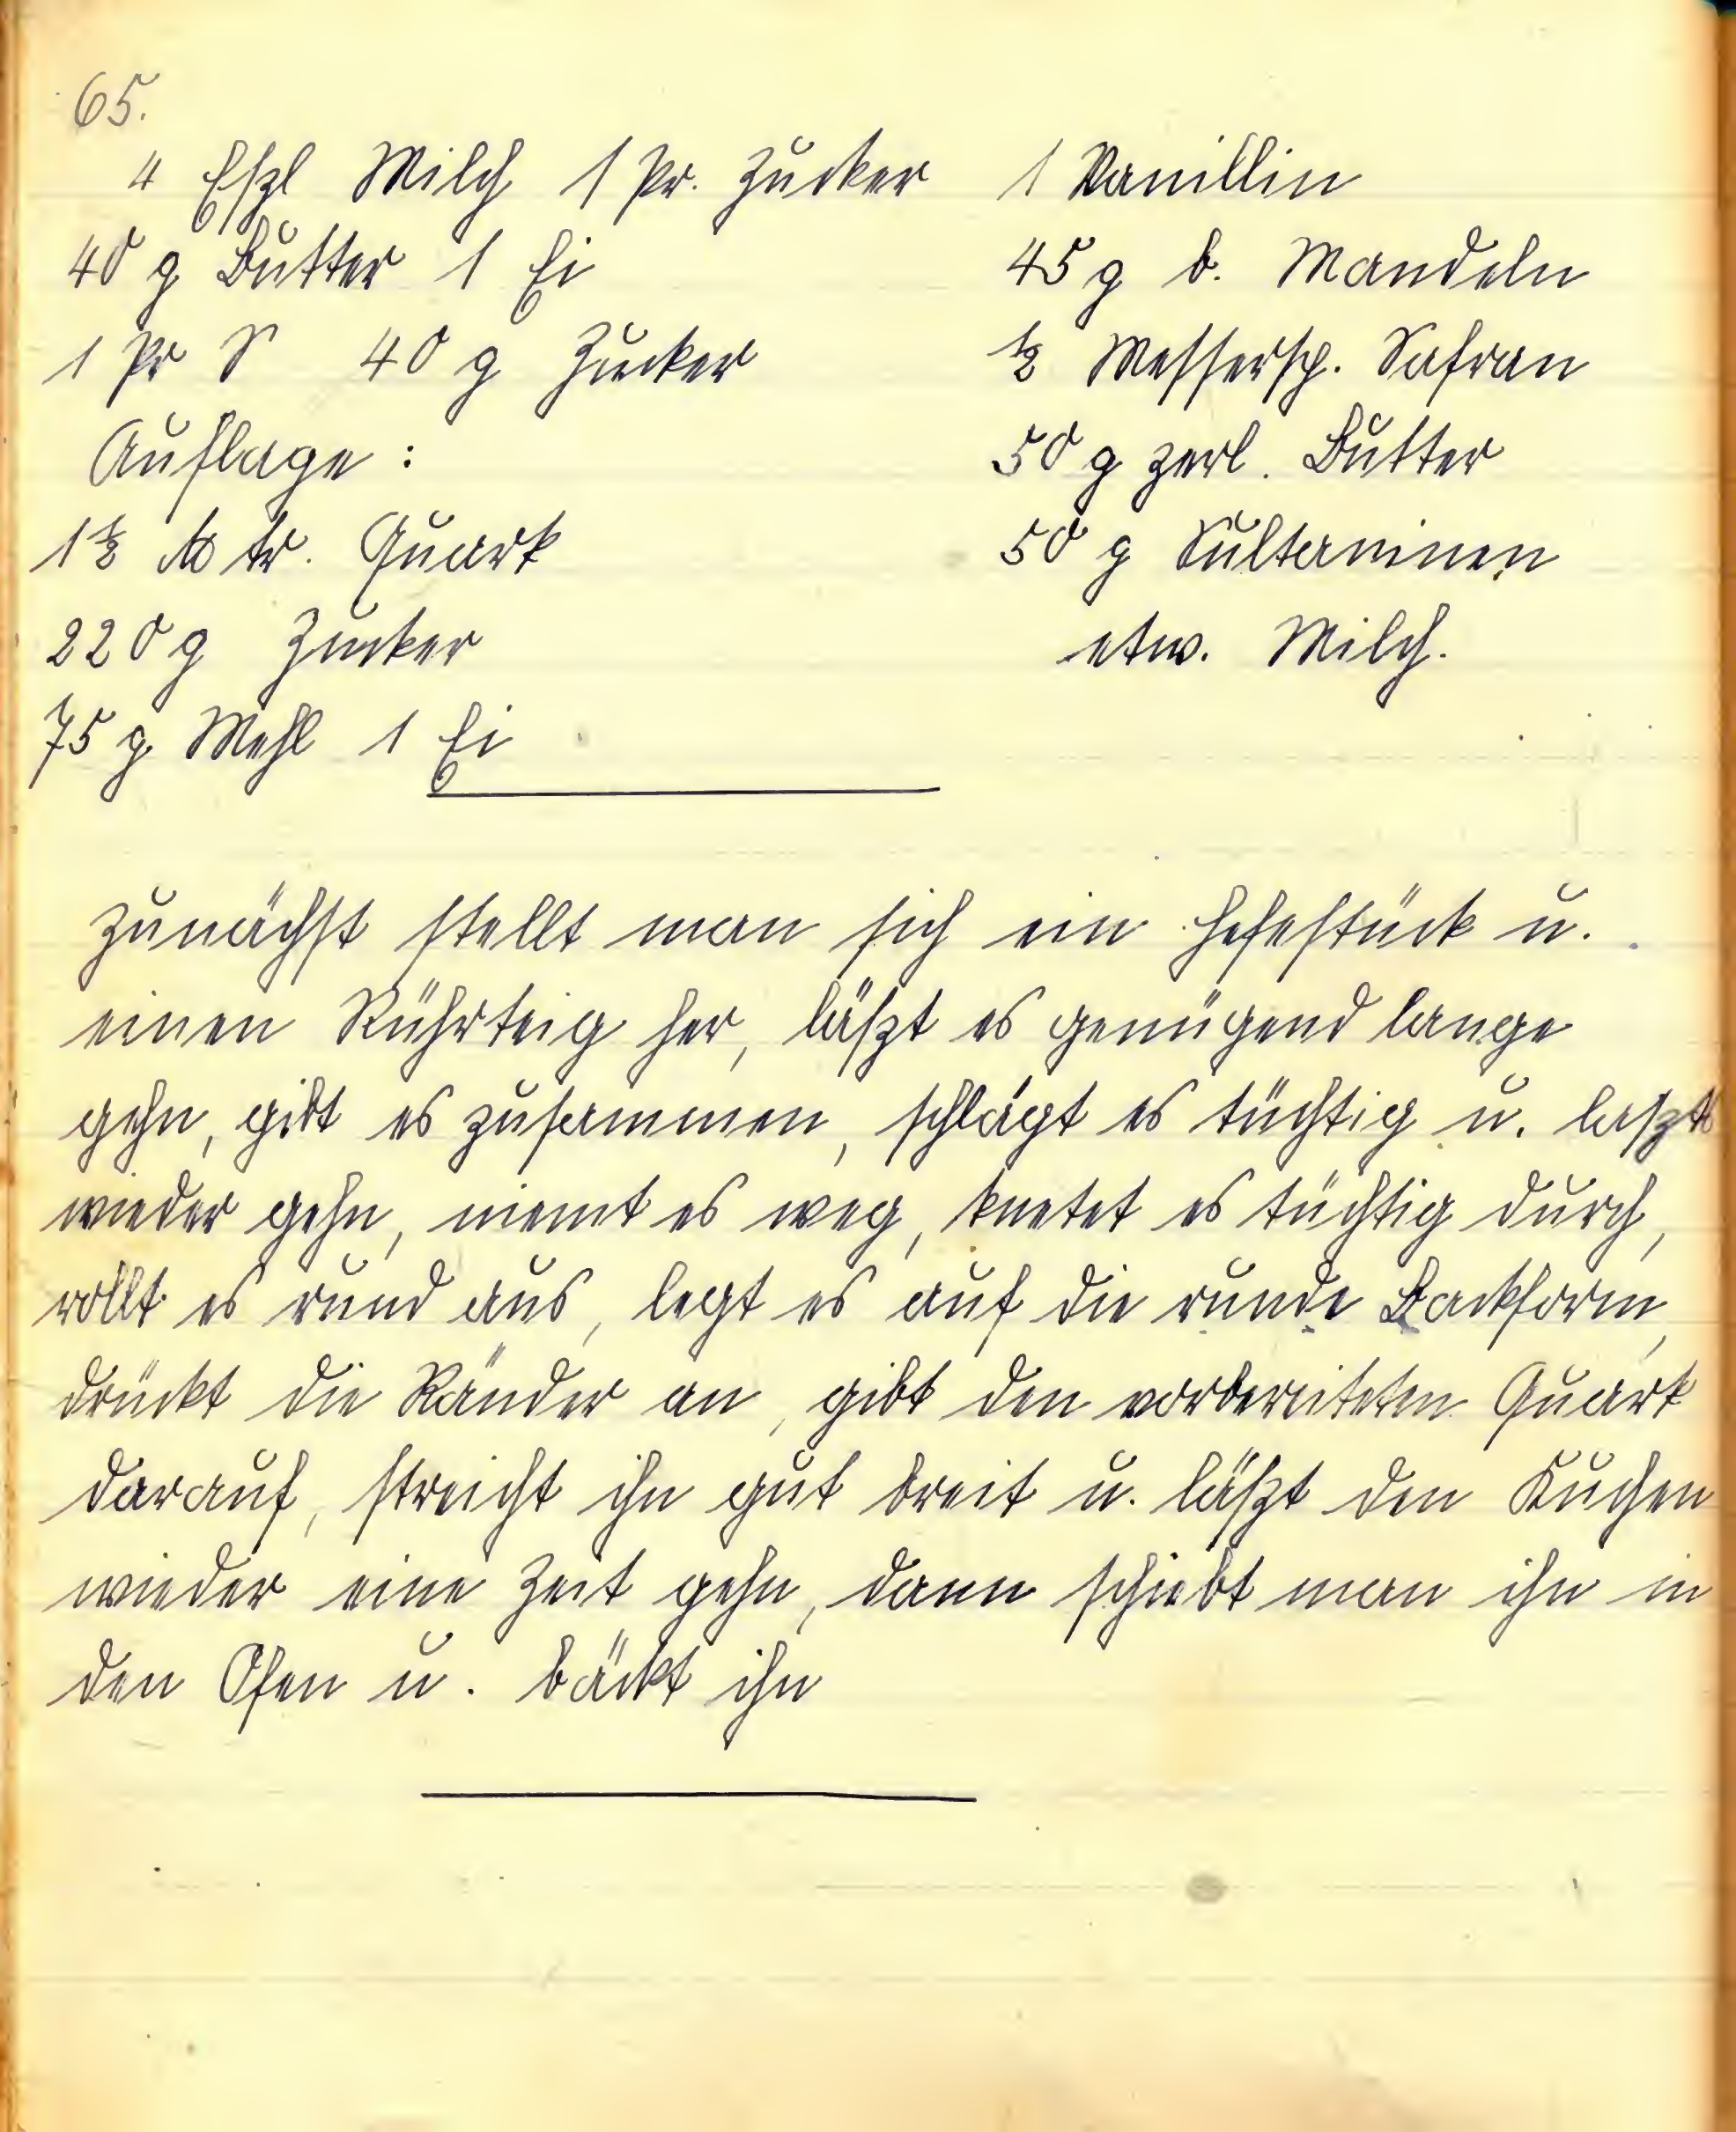 65.
4 Eßl Milch 1 Pr. Zucker
40 g Butter 1 Ei
1 Pr S 40 g Zucker
Auflage:
1½ ℔ tr. Quark
220 g Zucker
75 g Mehl 1 Ei
1 Vanillin
45 g b. Mandeln
½ Messersp. Safran
50 g zerl. Butter
50 g Sultaninen
etw. Milch.
Zunächst stellt man sich ein Hefestück u.
einen Rührteig her, läßt es genügend lange
gehn, gibt es zusammen, schlägt es tüchtig u. laßt
wieder gehn, niemt es weg, knetet es tüchtig durch,
rollt es rund aus, legt es auf die runde Backform,
drückt die Ränder an, gibt den vorbereiteten Quark
darauf, streicht ihn gut breit u. läßt den Kuchen
wieder eine Zeit gehn, dann schiebt man ihn in
den Ofen u. bäckt ihn